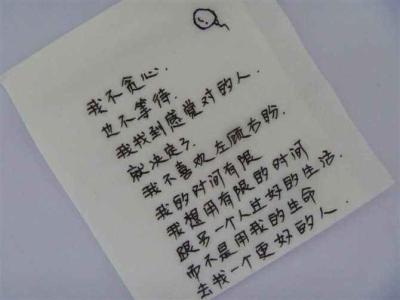 我不贪心.
也不等待.
我找到感觉对的人.
就决定了
我不喜欢左顾右盼.
我的时间有限
我想用有限的时间
跟另一个人过好的生活.
而不是用我的生命
去找一个更好的人.